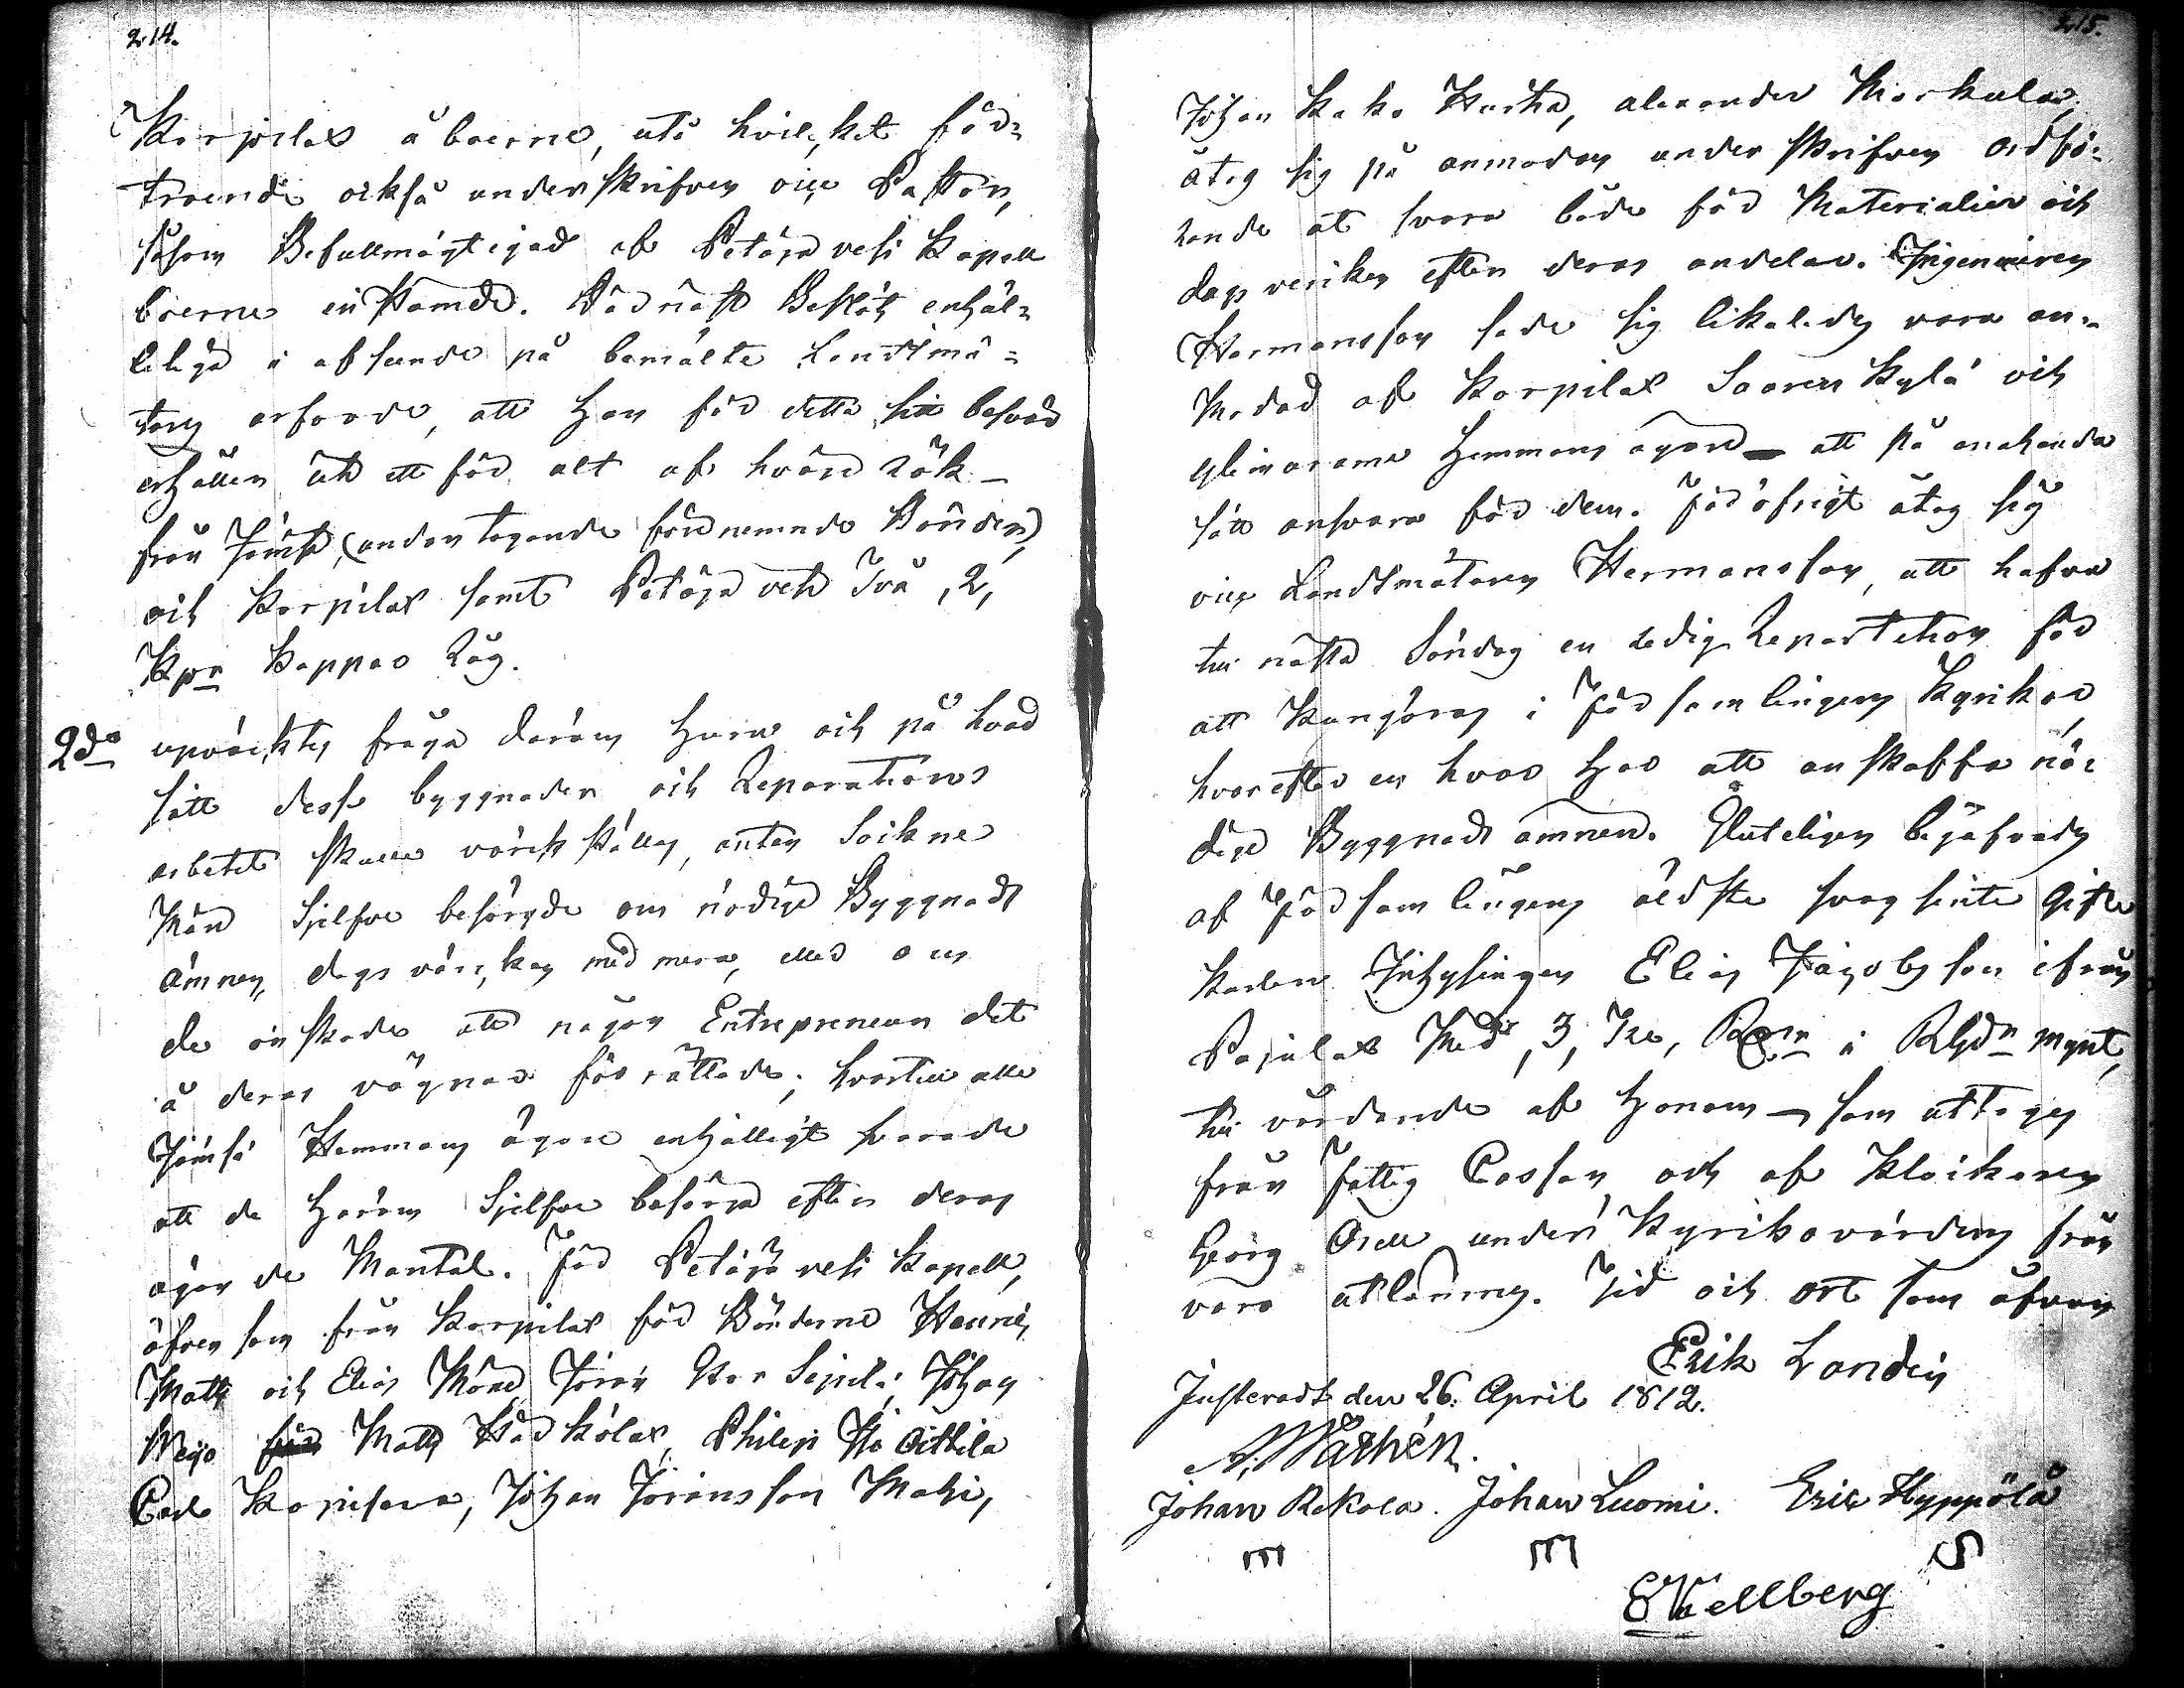 214.
Korpilax åboerne, uti hvilket för=
troende också underskrifven vice Pastor,
såsom Befullmägtigad af Petäjävesi Kapell
boerne instämde. Därnäst Beslöts enhäl=
leligen i afseende på bemälte Landtmä=
tares arfvode, att Han för detta sitt besvär
erhåller ett för alt af hvarje Rök
från Jämsä, (undantagande förenemnde Bönder)
och Korpilax samt Petäjävesi Två, 2,
Kpr Kappar Råg.
2do upväcktes fråga därom Huru och på hvad
sätt desse byggnader och Reparations
arbetet skulle värckställas, antingen Sockne
Män Sjelfve besörgde om nödige Byggnads
ämnen, dagsvärcken med mera, eller om
de önskade att någon Entrepreneur det
å deras vägnar förrättade; hvartill alla
Jämsä Hemmans ägare enhälligt svarade
att de Härom Sjelfve besörja efter deras
ägande Mantal. För Petäjävesi Kapell,
äfvensom från Korpilax för Bönderne Hennes
Matts och Elias Möne Jöran Kar Seppilä, Johan
Weijo för Matts Kärkölas, Philip Oittila
Carl Kopisava, Johan Jöransson Mati,
215.
Johan Kako Kurka, alexander Markula,
åtog sig på anmodan underskrifven Ordfö=
rande at svara både för Materialier och
dagsverken efter deras andelar. Ingenieuren
Hermansson sade sig likaledes vara an=
modad af Korpilax Saarenkylä och
Hemmans ägare att på enahanda
sätt ansvara för dem. För öfrigt åtog sig
vice Landtmätaren Hermansson, att hafva
till nästa Söndag en redig Repartition för
att kungöras i Församlingens Kyrkor,
hvarefter en hvar Har att anskaffa nö=
dige Byggnads ämnen. Sluteligen bejafvades
af Församlingens äldste svagsinte gifte
karlen Inhysingen Elias Jacobsson ifrån
Pajulax Med, 3, Tre, Rbr i Rbgdn mynt,
till vårdande af Honom som uttages
från Fattig Cassan och af Klockaren
Georg Orell under Kyrkovärdens från
varo utlämnas. Tid och ort som åfvan
Erik Landén
Justeradt den 26. April 1812.
A. Warhén.
Johan Rekola. Johan Luomi. Eric Hyppölä
E Wellberg